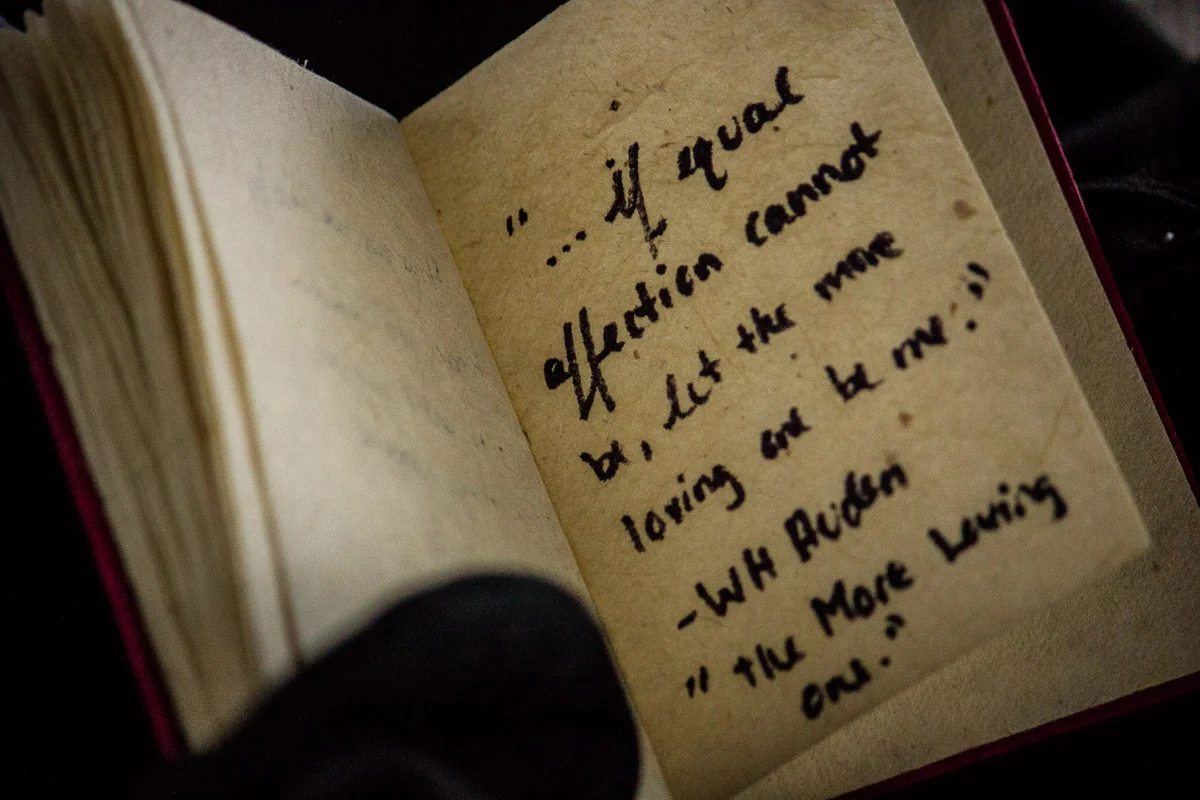 "... if equal
affection cannot
be, let the more
loving one be me."
-WH Auden
"the More Loving
one."